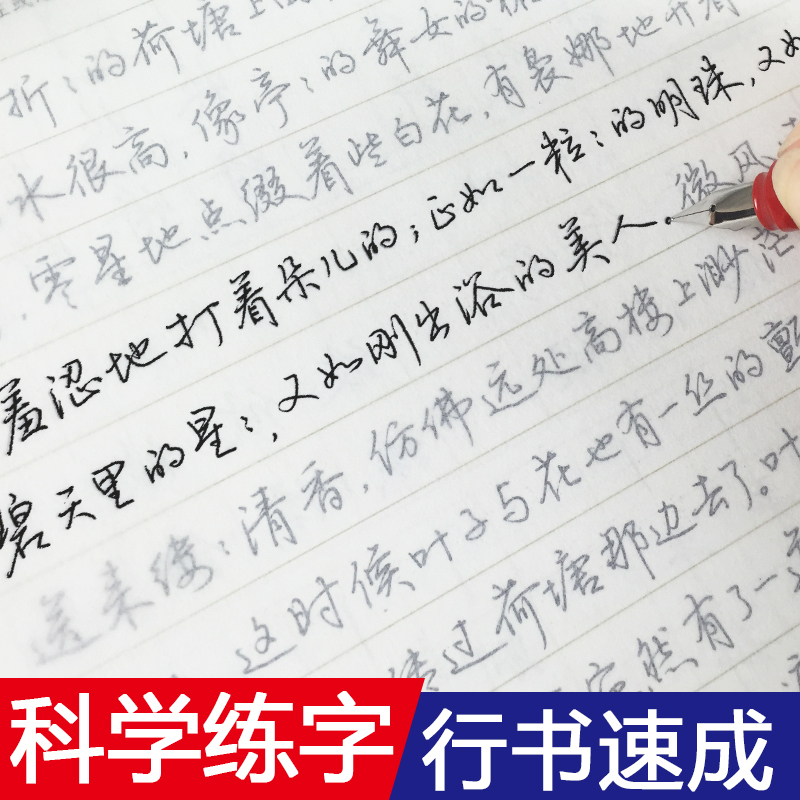 折:的荷塘上
水很高,像亭:的舞女的裙
,零星地点缀着些白花,有袅娜地开着
羞涩地打着朵儿的;正如一粒:的明珠,又如
碧天里的星:,又如刚出浴的美人。微风
送来缕:清香,仿佛远处高楼上渺茫
这时候叶子与花也有一丝的颤
过荷塘那边去了。叶
然有了一
科学练字
行书速成